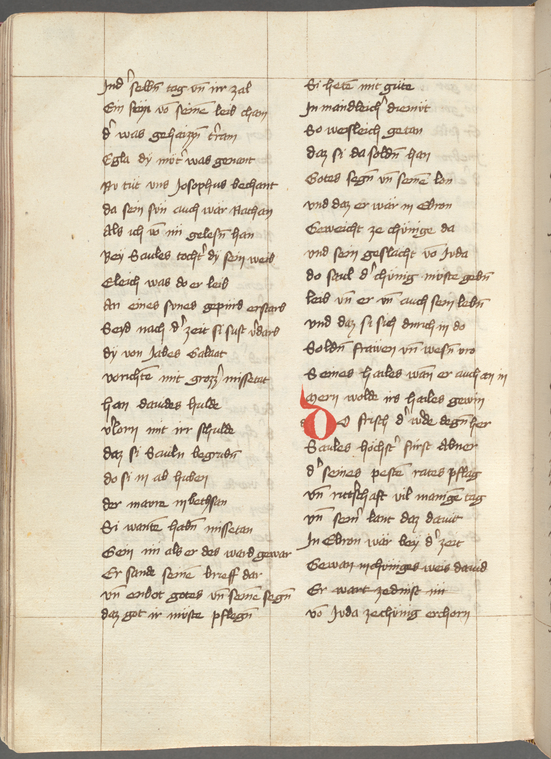 Ind' selbn̄ tag vn̄ irr zal
Ein sun vō seinē leib chan
d' was gehaizzn̄ t'ram
Egla dy müt' was genant
Nv tüt vns Josophus bechant
da sein svn auch war Nathan
Als ich vō im gelesn̄ han
Bey Saules tocht' dy sein weib
Eleich was do er leib
An eines svnes gepürd erstarb
Seyd nach d' zeit si sust v'darb
dy von Jabes Galaat
vorichtē mit grozz' missetat
han dauides hulde
v'lorn mit irr schulde
daz si Sauln̄ begrubn̄
do si in ab hubn̄
der maure in bethsan
Si wantē habn̄ missetan
Gein im als er des ward gewar
Er sante seine brieff dar
vn̄ enbot gotes vn̄ seinē segn̄
daz got ir müste pflegn̄
Si hetē mit güte
In mandleich' diemüt
So weisleich getan
daz si da soldn̄ han
Gotes segn̄ vn̄ seinē lon
vnd daz er wär in Ebron
Geweicht ze chünige da
vnd sein geslächt vō Juda
do saul d' chünig müste gebn̄
leib vn̄ er vn̄ auch sein lebn̄
vnd daz si sich durch in do
Soldn̄ frawen vn̄ wesn̄ vro
Seines hailes wan er auch an in
Mern wolde irs hailes gewin
Do frisch d' wde degn̄ her
Saules höchst' fürst Abner
d' seines pestē rates pflag
vn̄ ritt'schaft vil manigē tag
vn̄ sein' lant daz dauit
In Ebron wär bey d' zeit
Gewan in chüniges weis dauid
Er wart zedinst im
vō Juda ze chünig erchorn